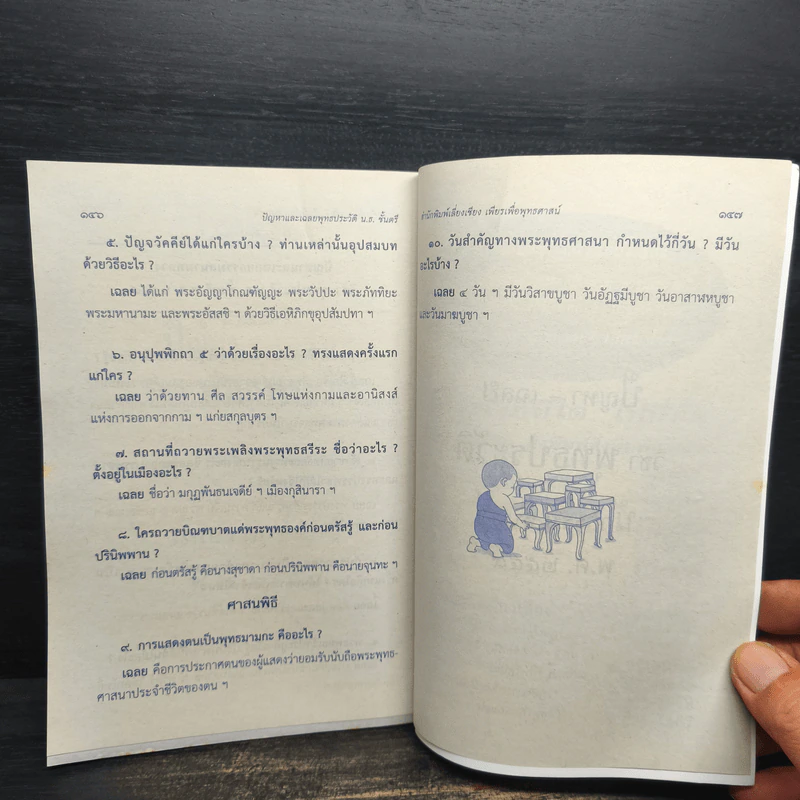 ๑๔๖
ปัญหาและเฉลยพุทธประวัติ น.ธ. ชั้นตรี
๕. ปัญจวัคคีย์ได้แก่ใครบ้าง ? ท่านเหล่านั้นอุปสมบท
ด้วยวิธีอะไร ?
เฉลย ได้แก่ พระอัญญาโกณฑัญญะ พระวัปปะ พระภัททิยะ
พระมหานามะ และพระอัสสชิ ฯ ด้วยวิธีเอหิภิกขุอุปสัมปทา ฯ
๖. อนุปุพพิกถา ๕ ว่าด้วยเรื่องอะไร ? ทรงแสดงครั้งแรก
แก่ใคร ?
เฉลย ว่าด้วยทาน ศีล สวรรค์ โทษแห่งกามและอานิสงส์
แห่งการออกจากกาม ฯ แก่ยสกุลบุตร ฯ
๗. สถานที่ถวายพระเพลิงพระพุทธสรีระ ชื่อว่าอะไร ?
ตั้งอยู่ในเมืองอะไร ?
เฉลย ชื่อว่า มกุฏพันธนเจดีย์ ฯ เมืองกุสินารา ฯ
๘. ใครถวายบิณฑบาตแด่พระพุทธองค์ก่อนตรัสรู้ และก่อน
ปรินิพพาน ?
เฉลย ก่อนตรัสรู้ คือนางสุชาดา ก่อนปรินิพพาน คือนายจุนทะ ฯ
ศาสนพิธี
๙. การแสดงตนเป็นพุทธมามกะ คืออะไร ?
เฉลย คือการประกาศตนของผู้แสดงว่ายอมรับนับถือพระพุทธ-
ศาสนาประจำชีวิตของตน ฯ
สำนักพิมพ์เลี่ยงเชียง เพียรเพื่อพุทธศาสน์
๑๔๗
๑๐. วันสำคัญทางพระพุทธศาสนา กำหนดไว้กี่วัน ? มีวัน
อะไรบ้าง ?
เฉลย ๔ วัน ฯ มีวันวิสาขบูชา วันอัฏฐมีบูชา วันอาสาฬหบูชา
และวันมาฆบูชา ฯ